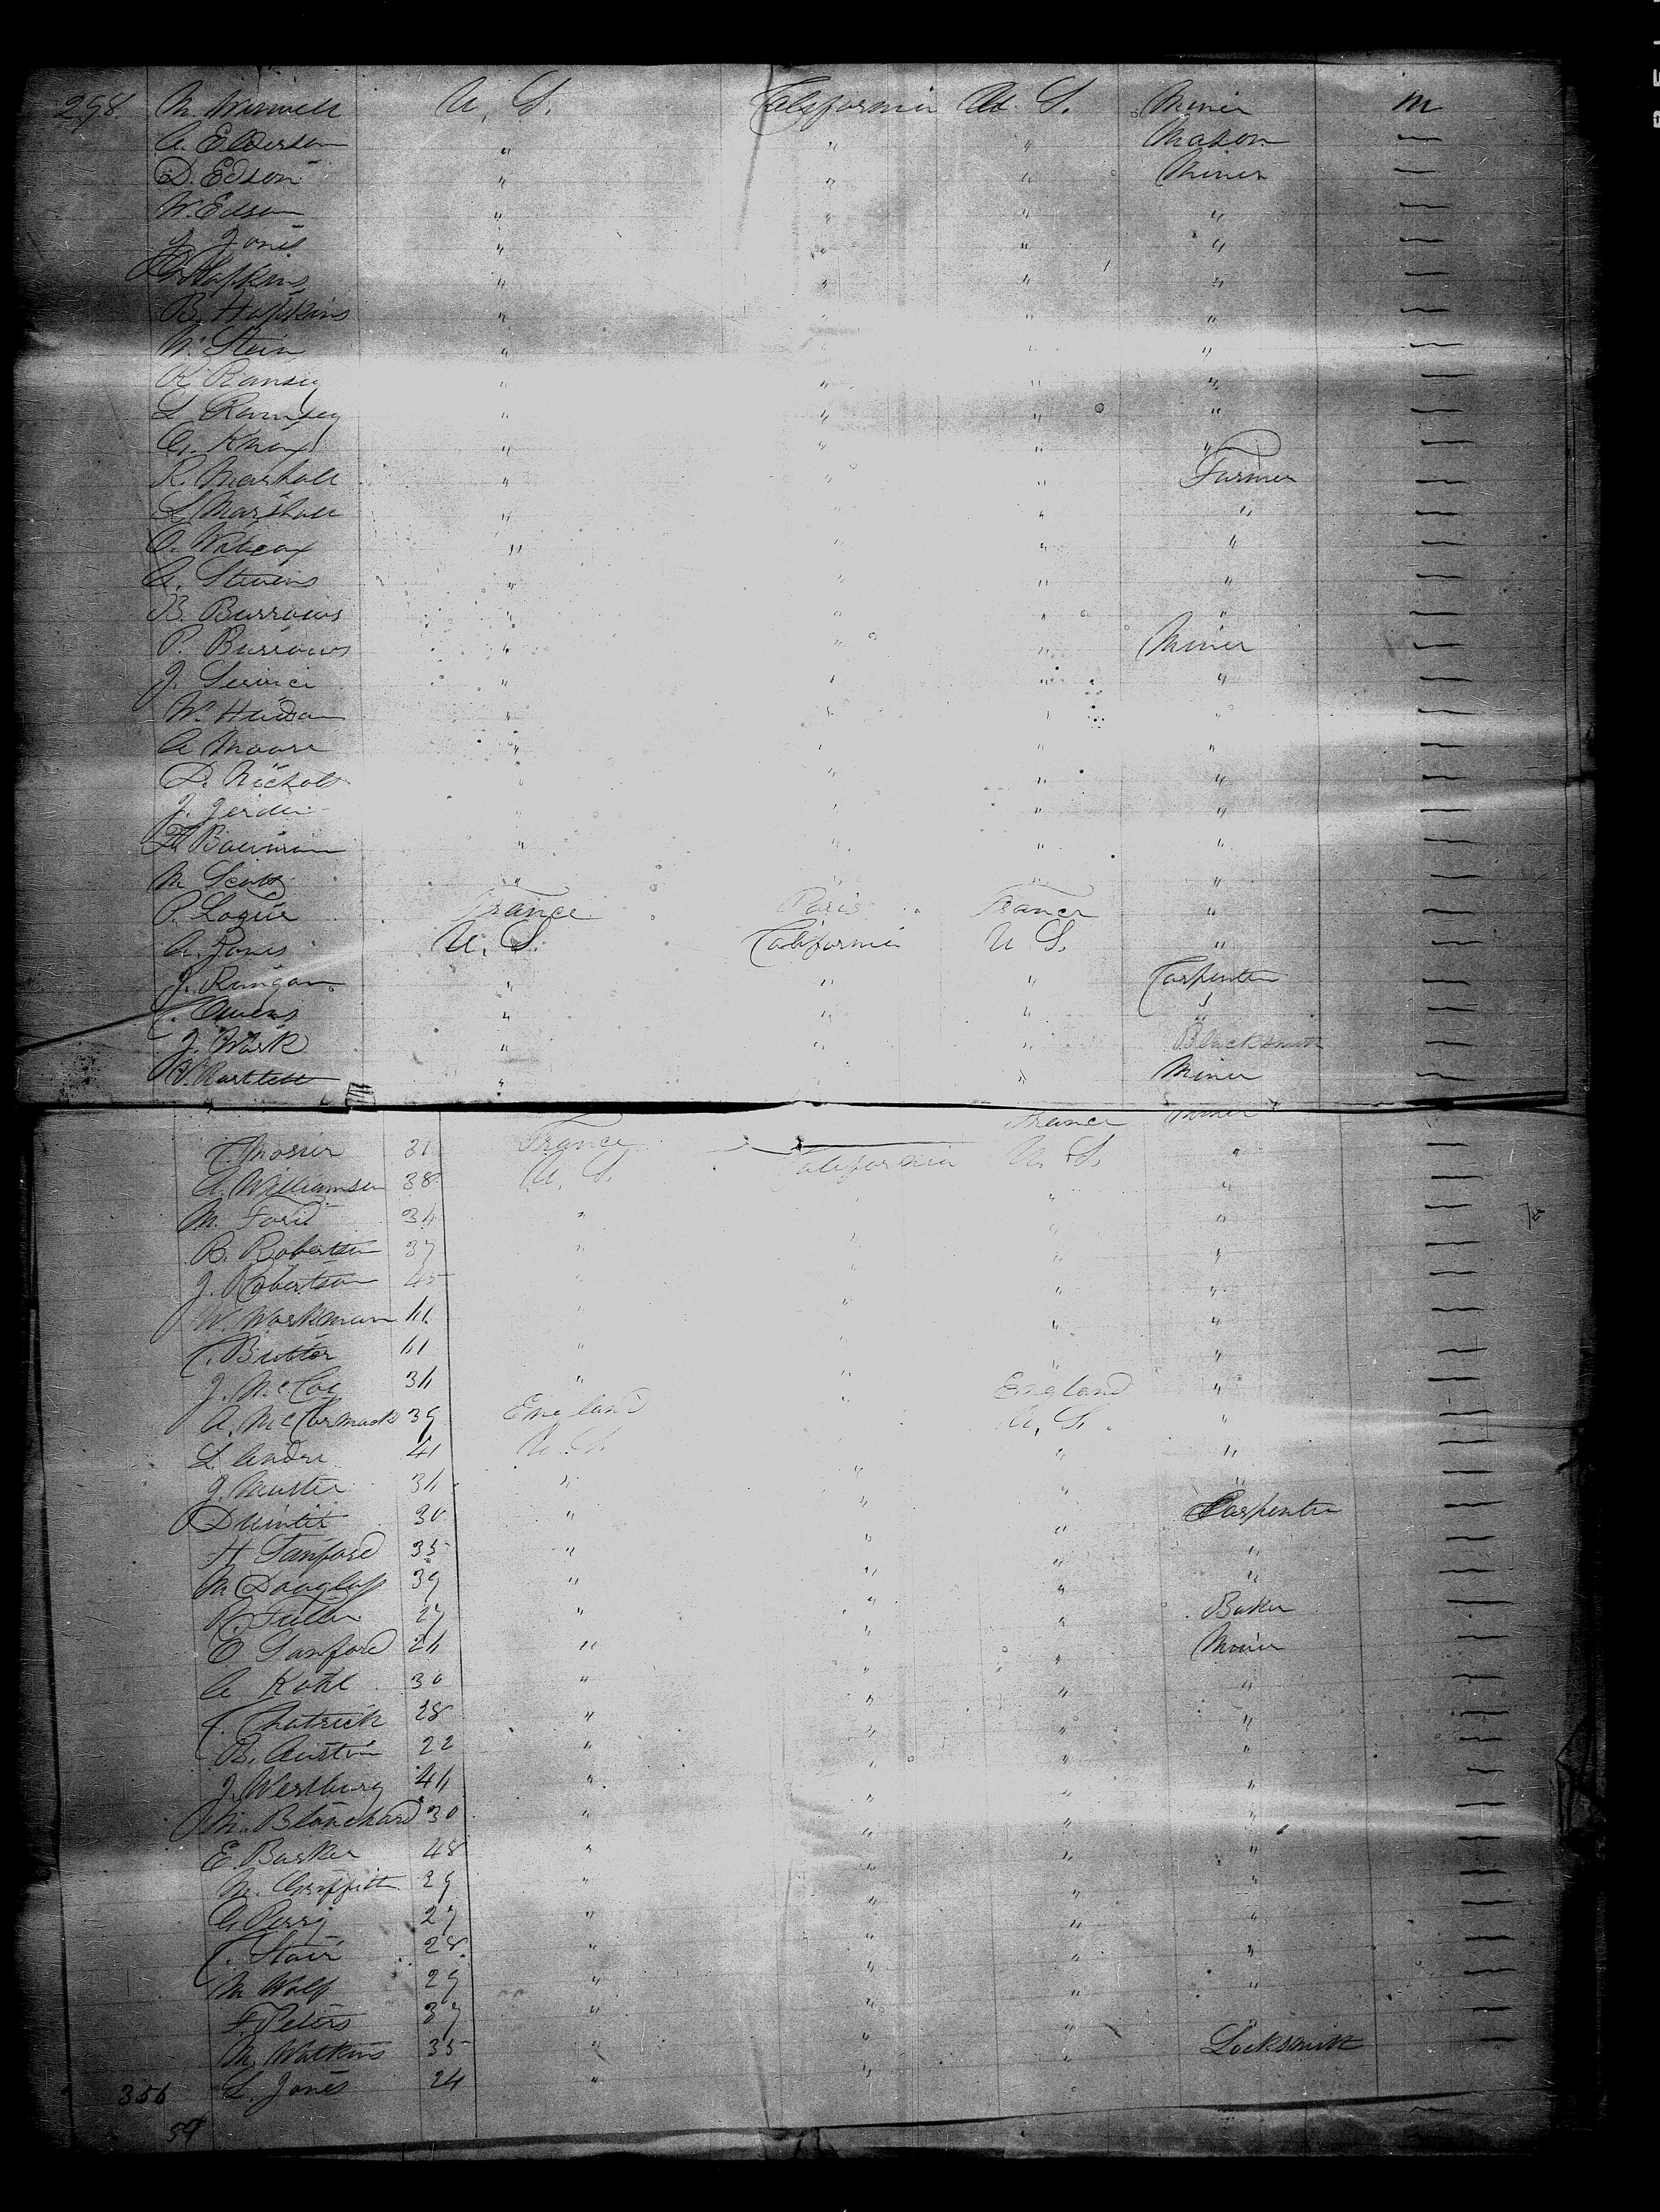 298. M. U. S. California U. S. Miner M
A. Elderson " " " Mason —
D. Edson " " " Miner —
W. Edson " " " " —
Jones " " " " —
Hopkins " " " " —
B. Hopkins " " " " —
W. Stein " " " " —
R. Ramsey " " " " —
L. Ramsey " " " " —
G. Knox " " " " —
R. Marshall " " " Farmer —
L. Marshall " " " " —
O. Wilcox " " " " —
A. Stevens " " " " —
B. Burrows " " " " —
P. Burrows " " " Miner —
J. Service " " " " —
W. " " " " —
A Moore " " " " —
D. Nichols " " " " —
J. " " " " —
H Bowman " " " " —
M Scott " " " " —
P. Logue France Paris France " —
A. Jones U. S. California U. S. " —
J. Rungan " " " Carpenter —
C. Owens " " " " —
J. Work " " " Blacksmith —
Bartlett " " " Miner —
France Miner
C. Mosser 31 France U. S. " —
A. Williamson 38 U. S. California " " —
M. Ford 34 " " " —
B. Robertson 37 " " " " —
J. Robertson 45 " " " " —
W. Workman 41 " " " " —
C. 41 " " " —
J. McCoy 34 " " England " —
A. McCormack 39 England " U. S. " —
L. Andre 41 U. S. " " —
J. 34 " " " " —
D 30 " " " Carpenter —
H Sanford 35 " " " " —
M Douglass 39 " " " " —
R. Fuller 27 " " " Baker —
O Sanford 24 " " " Miner —
A Kohl 30 " " " " —
C. Chatrick 28 " " " " —
B. Austin 22 " " " " —
J. Westburg 44 " " " " —
M. Blanchard 30 " " " " —
E. Barker 48 " " " " —
M. Griffith 29 " " " " —
G. Perry 27 " " " " —
C. Stair 28 " " " " —
M Wolf 29 " " " " —
F. Peters 37 " " " " —
M. Watkins 35 " " " Locksmith —
356 L. Jones 24 " "
59